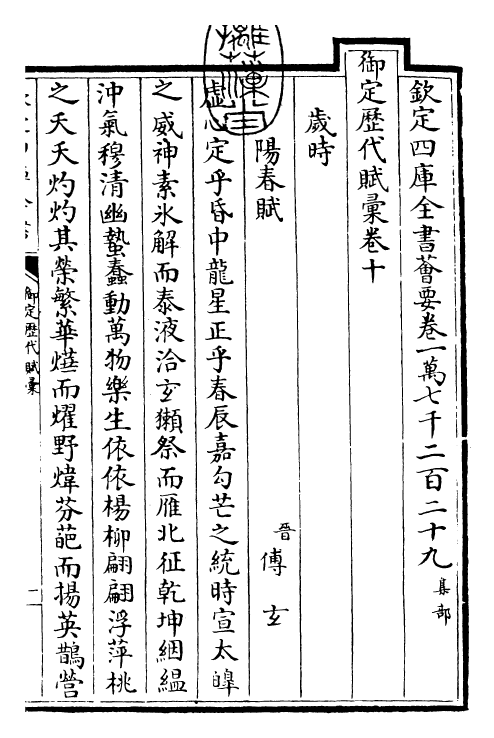 欽定四庫全書薈要卷一萬七千二百二十九 集部
御定歷代賦彙卷十
歲時
陽春賦 晉 傅玄
虛心定乎昏中龍星正乎春辰嘉勾芒之統時宣太皞
之威神素冰解而泰液洽玄獺祭而雁北征乾坤絪縕
沖氣穆清幽蟄蠢動萬物樂生依依楊柳翩翩浮萍桃
之夭夭灼灼其榮繁華燡而燿野煒芬葩而揚英鵲營
御定歷代賦彙